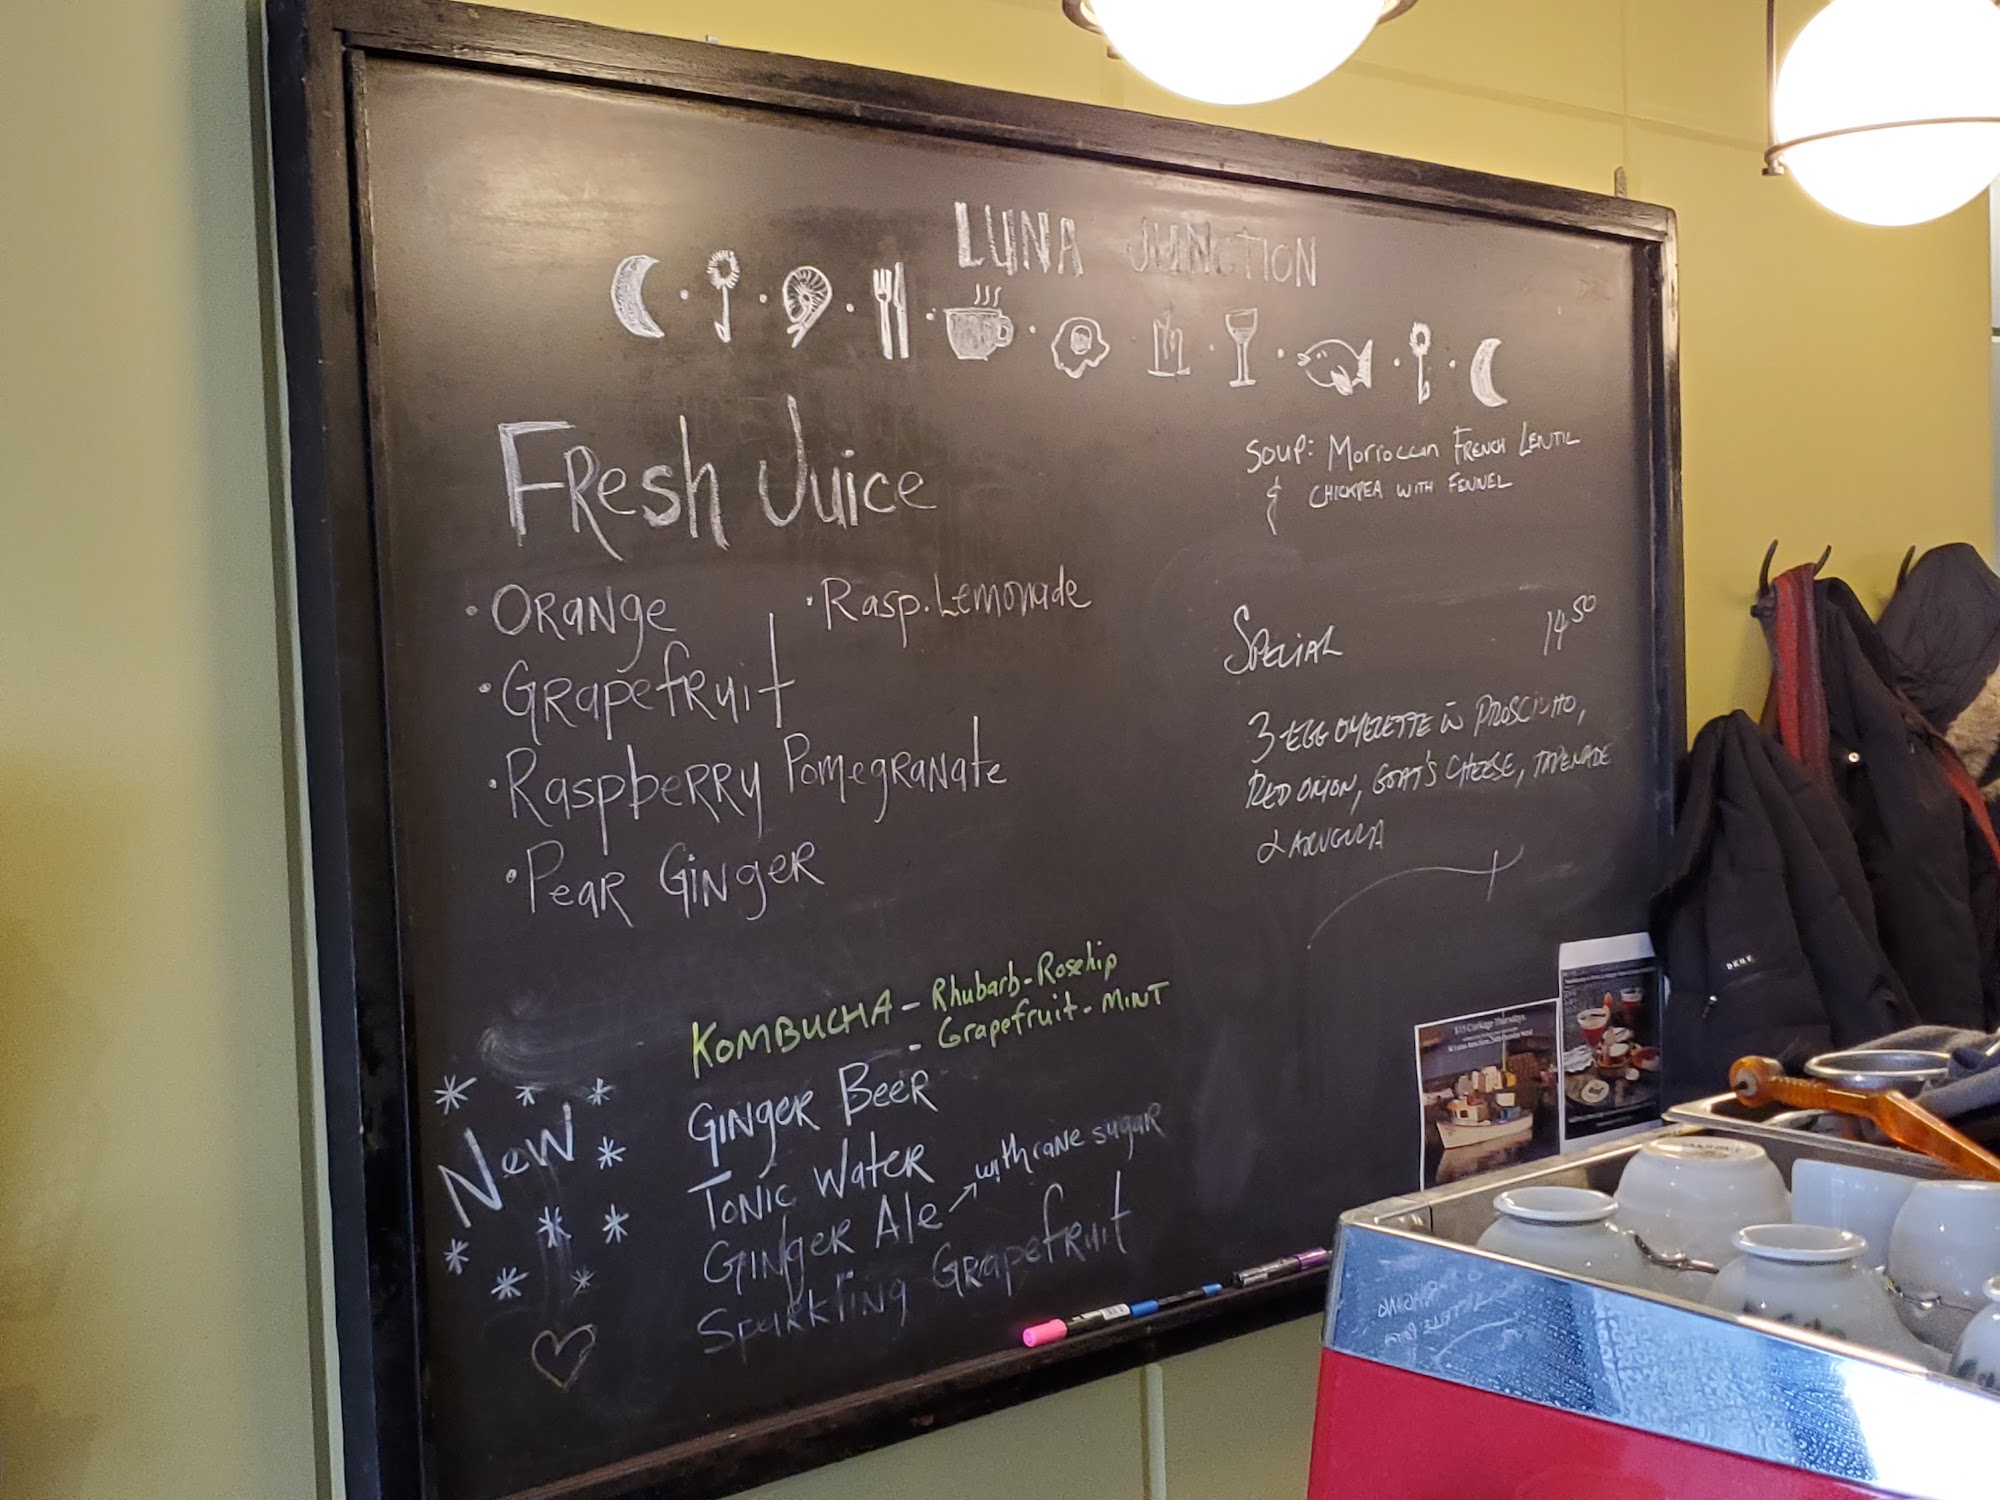 LUNA JUNCTION
FResh Juice
·ORaNge
·Rasp.Lemonade
·GRapefRuit
·RaspbeRRy PomegRaNate
·PeaR GiNgeR
Soup: Morroccan FRENCH LENTIL
& CHICKPEA WITH FENNEL
SPECIAL 14 50
3-EGG OMELETTE W PROSCIUTTO,
RED ONION, GOAT'S CHEESE, TAPENADE
& ARUGULA
KOMBUCHA - Rhubarb-Rosehip
- Grapefruit-MINT
New
GiNgeR BeeR
ToNic WateR
GiNgeR Ale → with cane sugar
SparkliNg GRapefRuit
$15 Corkage Thursdays
DKNY